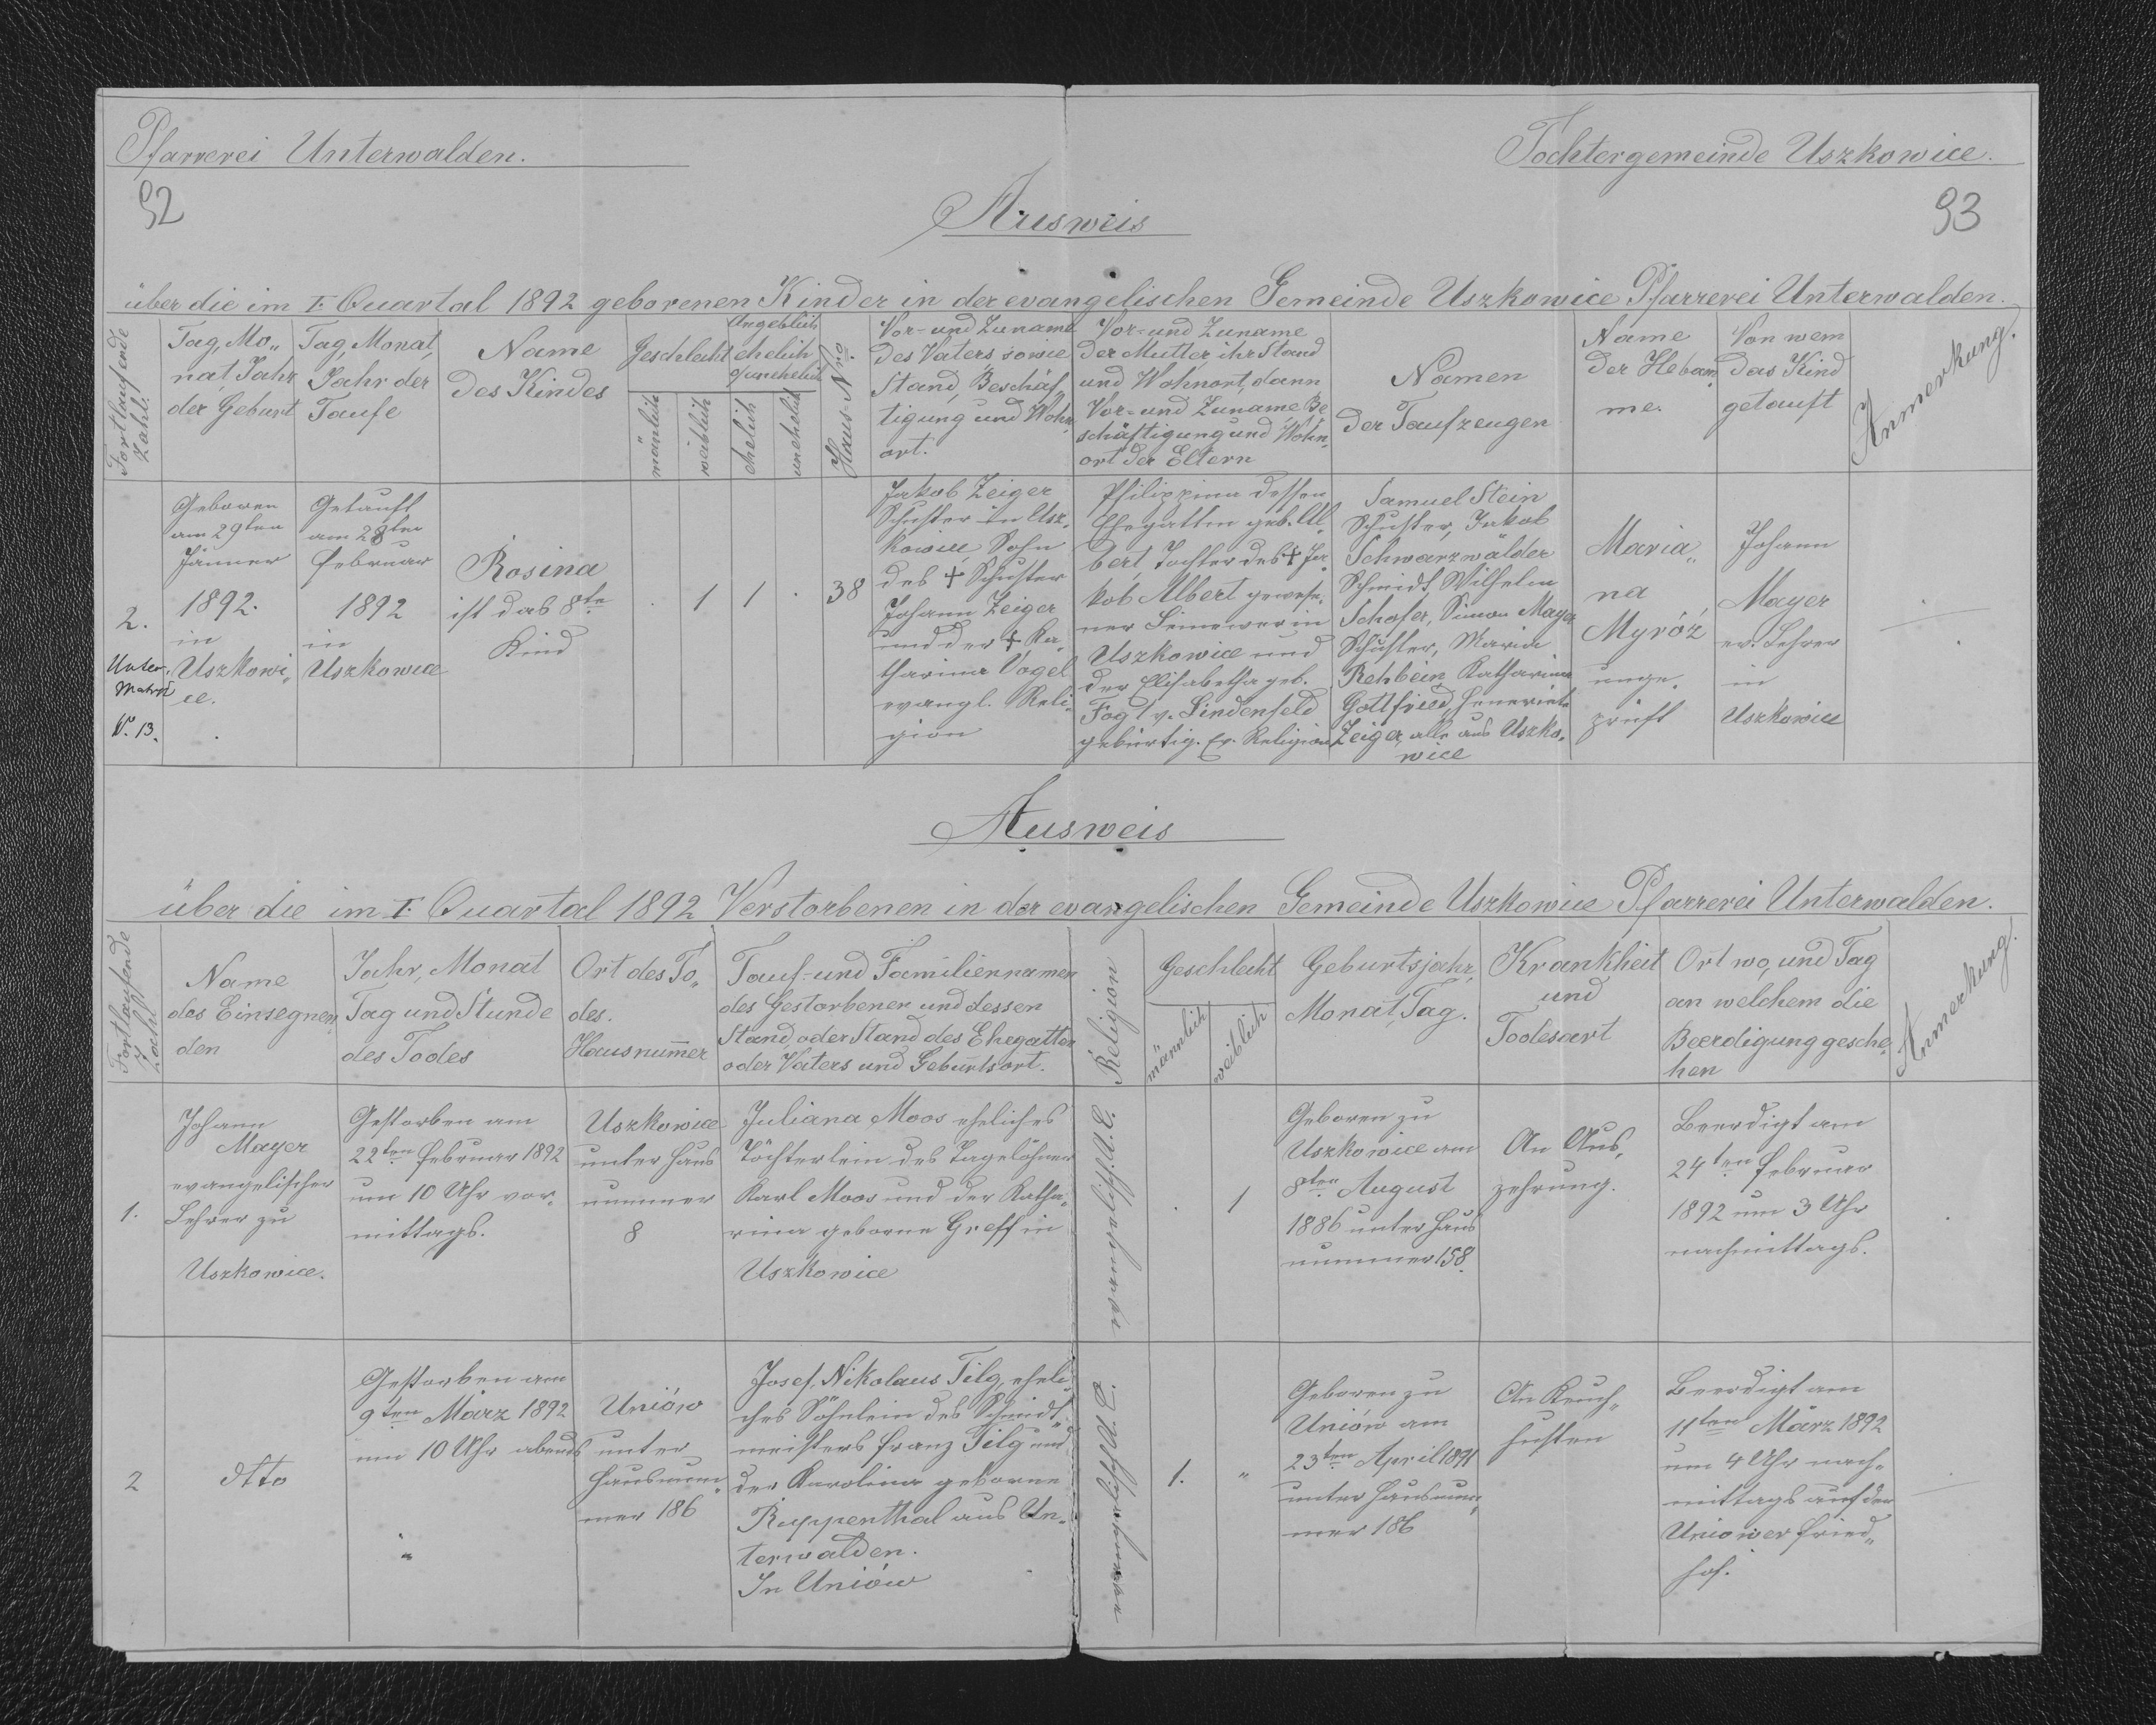 Pfarrerei Unterwalden.
Tochtergemeinde Uszkowice.
92
93
Ausweis
über die im I. Quartal 1892 geborenen Kinder in der evangelischen Gemeinde Uszkowice Pfarrerei Unterwalden.
Fortlaufende
Zahl.
Tag, Mo„
nat Jahr
der Geburt
Tag, Monat,
Jahr der
Taufe
Name
des Kindes
Geschlecht
mänlich
weiblich
Angeblich
ehelich
o/unehelich
ehelich
unehelich
Haus-Nro.
Vor- und Zuname
des Vaters sowie
Stand, Beschäf„
tigung und Wohn„
ort.
Vor- und Zuname
der Mutter, ihr Stand
und Wohnort, dann
Vor- und Zuname Be
schäftigung und Wohn„
ort der Eltern
Namen
der Taufzeugen
Name
der Hebam„
me.
Von wem
das Kind
getauft
Anmerkung.
2.
Unter.
Matrik
N. 13.
Geboren
am 29ten
Jänner
1892.
in
Uszkowi„
ce.
Getauft
am 28ten
Februar
1892
in
Uszkowice
Rosina
ist das 8te
Kind
.
1
1
.
38
Jakob Zeiger
Schuster in Usz„
kowice Sohn
des + Schuster
Johann Zeiger
und der + Ka„
tharina Vogel
evangl. Reli„
gion
Philippina dessen
Ehegattin geb. Al„
bert, Tochter des + Ja„
kob Albert gewese„
ner Leineweber in
Uszkowice und
der Elisabetha geb.
Fogt v. Lindenfeld
gebürtig. Ev. Religion
Samuel Stein
Schuster, Jakob
Schwarzwälder
Schmidt, Wilhelm
Schofer, Simon Mayer
Schuster, Maria
Rehbein Katharina
Gottfried, Heneriete
Zeiger, alle aus Uszko„
wice
Maria„
na
Myróz
unge„
prüft
Johann
Mayer
ev. Lehrer
in
Uszkowice
Ausweis
über die im I. Quartal 1892 Verstorbenen in der evangelischen Gemeinde Uszkowice Pfarrerei Unterwalden.
Fortlaufende
Zahl
Name
des Einsegnen„
den
Jahr, Monat
Tag und Stunde
des Todes
Ort des To„
des.
Hausnum̄er
Tauf- und Familiennamen
des Gestorbenen und dessen
Stand, oder Stand des Ehegatten
oder Vaters und Geburtsort.
Religion
Geschlecht
männlich
weiblich
Geburtsjahr,
Monat, Tag.
Krankheit
und
Todesart
Ort wo, und Tag
an welchem die
Beerdigung gesche„
hen
Anmerkung.
1.
Johann
Mayer
evangelischer
Lehrer zu
Uszkowice.
Gestorben am
22ten Februar 1892
um 10 Uhr vor„
mittags.
Uszkowice
unter Haus
nummer
8
Juliana Moos eheliches
Töchterlein des Tagelöhner
Karl Moos und der Katha„
rina geborne Greff in
Uszkowice
evangelisch. A.C.
.
1
Geboren zu
Uszkowice am
8ten August
1886 unter Haus
nummer 158.
An Aus„
zehrung.
Beerdigt am
24ten Februar
1892 um 3 Uhr
nachmittags.
.
2
dtto
Gestorben am
9ten März 1892
um 10 Uhr abends
"
Uniów
unter
Hausnum„
mer 186
Josef, Nikolaus Tilg, eheli„
ches Söhnlein des Schmidt„
meisters Franz Tilg und
der Karolina geborne
Ruppenthal aus Un„
terwalden.
In Uniów
evangelisch A.C.
1.
"
Geboren zu
Uniów am
23ten April 1891
unter Hausnum„
mer 186
An Keuch„
husten
Beerdigt am
11ten März 1892
um 4 Uhr nach„
mittags auf den
Uniower Fried„
hof.